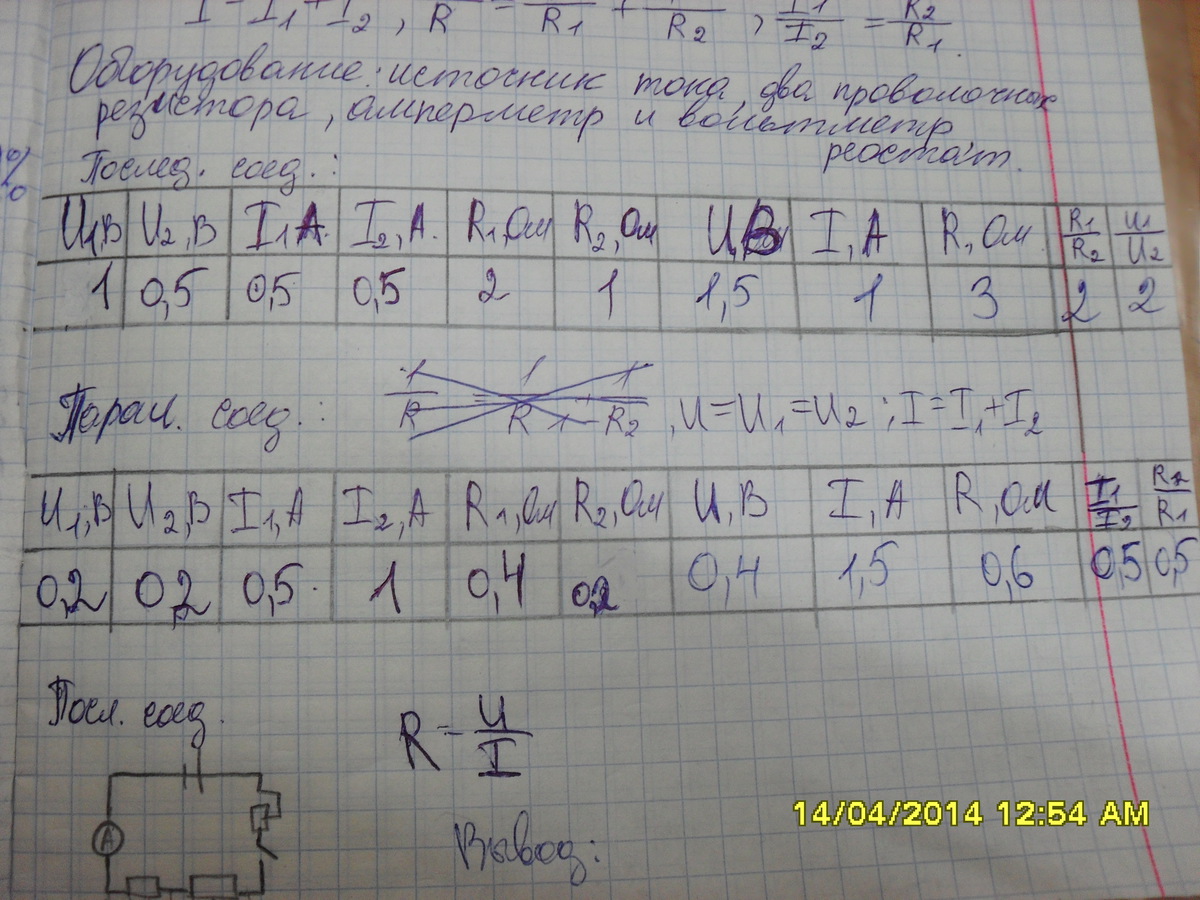 I = I₁ + I₂ , 1/R = 1/R₁ + 1/R₂ ; I₁/I₂ = R₂/R₁.
Оборудование: источник тока, два проволочных
резистора, амперметр и вольтметр
реостат.
%
Послед. соед.:
U₁,В U₂,В I₁,А I₂,А. R₁,Ом R₂,Ом U,В I,А R,Ом R₁/R₂ U₁/U₂
1 0,5 0,5 0,5 2 1 1,5 1 3 2 2
Парал. соед.: 1/R = 1/R + 1/R₂ , U=U₁=U₂ ; I=I₁+I₂
U₁,В U₂,В I₁,А I₂,А R₁,Ом R₂,Ом U,В I,А R,Ом I₁/I₂ R₂/R₁
0,2 0,2 0,5 1 0,4 0,2 0,4 1,5 0,6 0,5 0,5
Посл. соед.
R = U/I
А
14/04/2014 12:54 AM
Вывод: